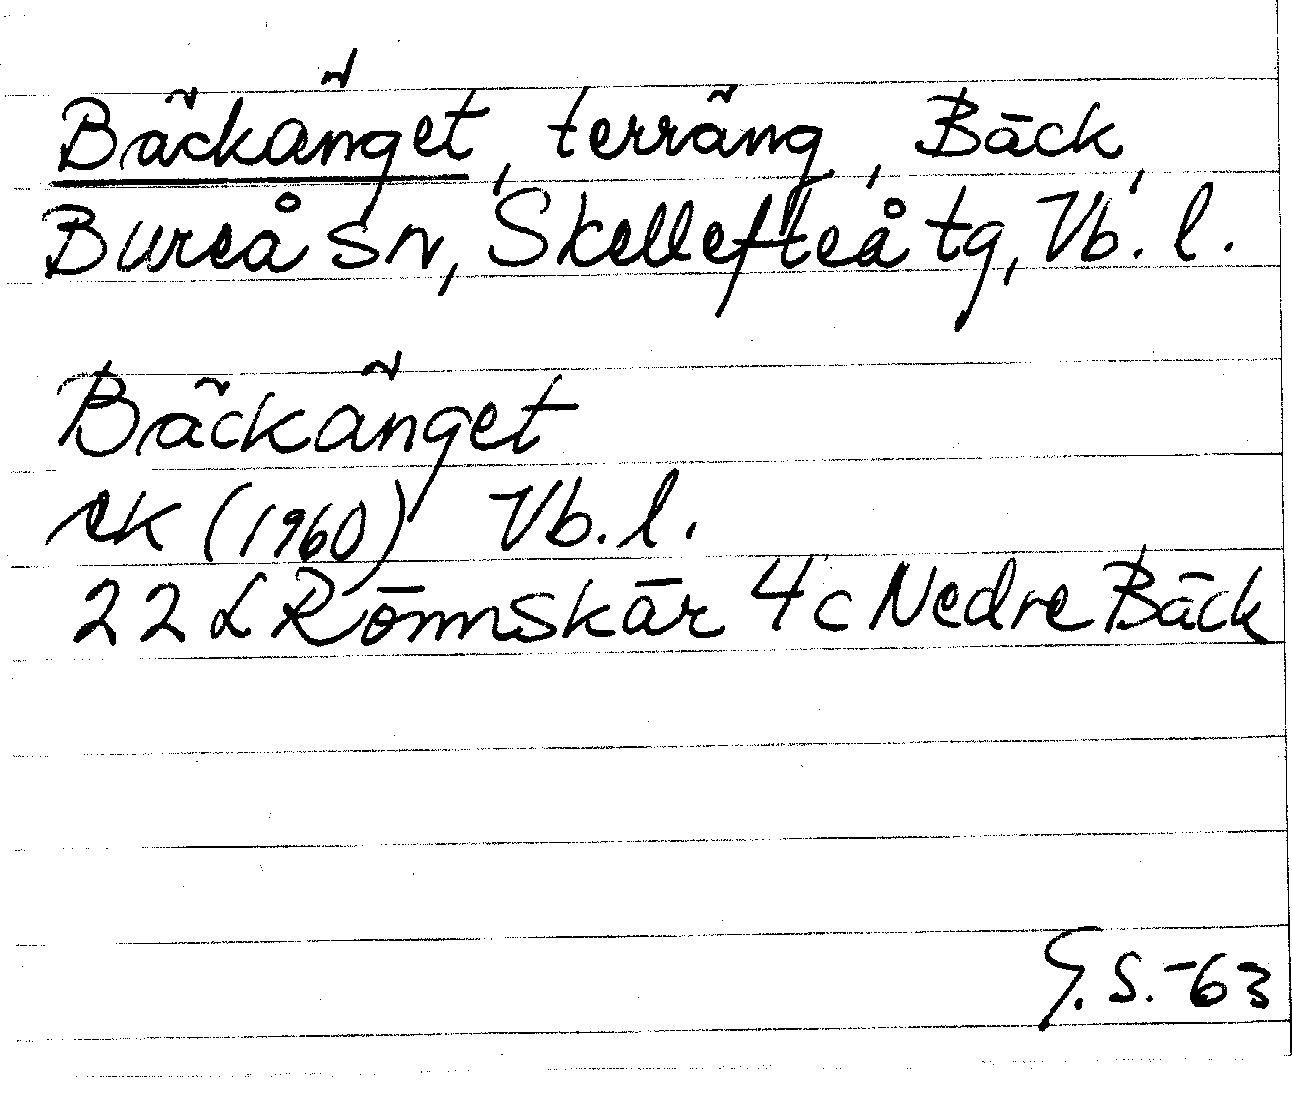 Bäckänget, terräng, Bäck,
Bureå sn, Skellefteå tg, Vb. l.
Bäckänget
ek (1960) Vb. l.
22 L Rönnskär 4c Nedre Bäck
G.S.-63